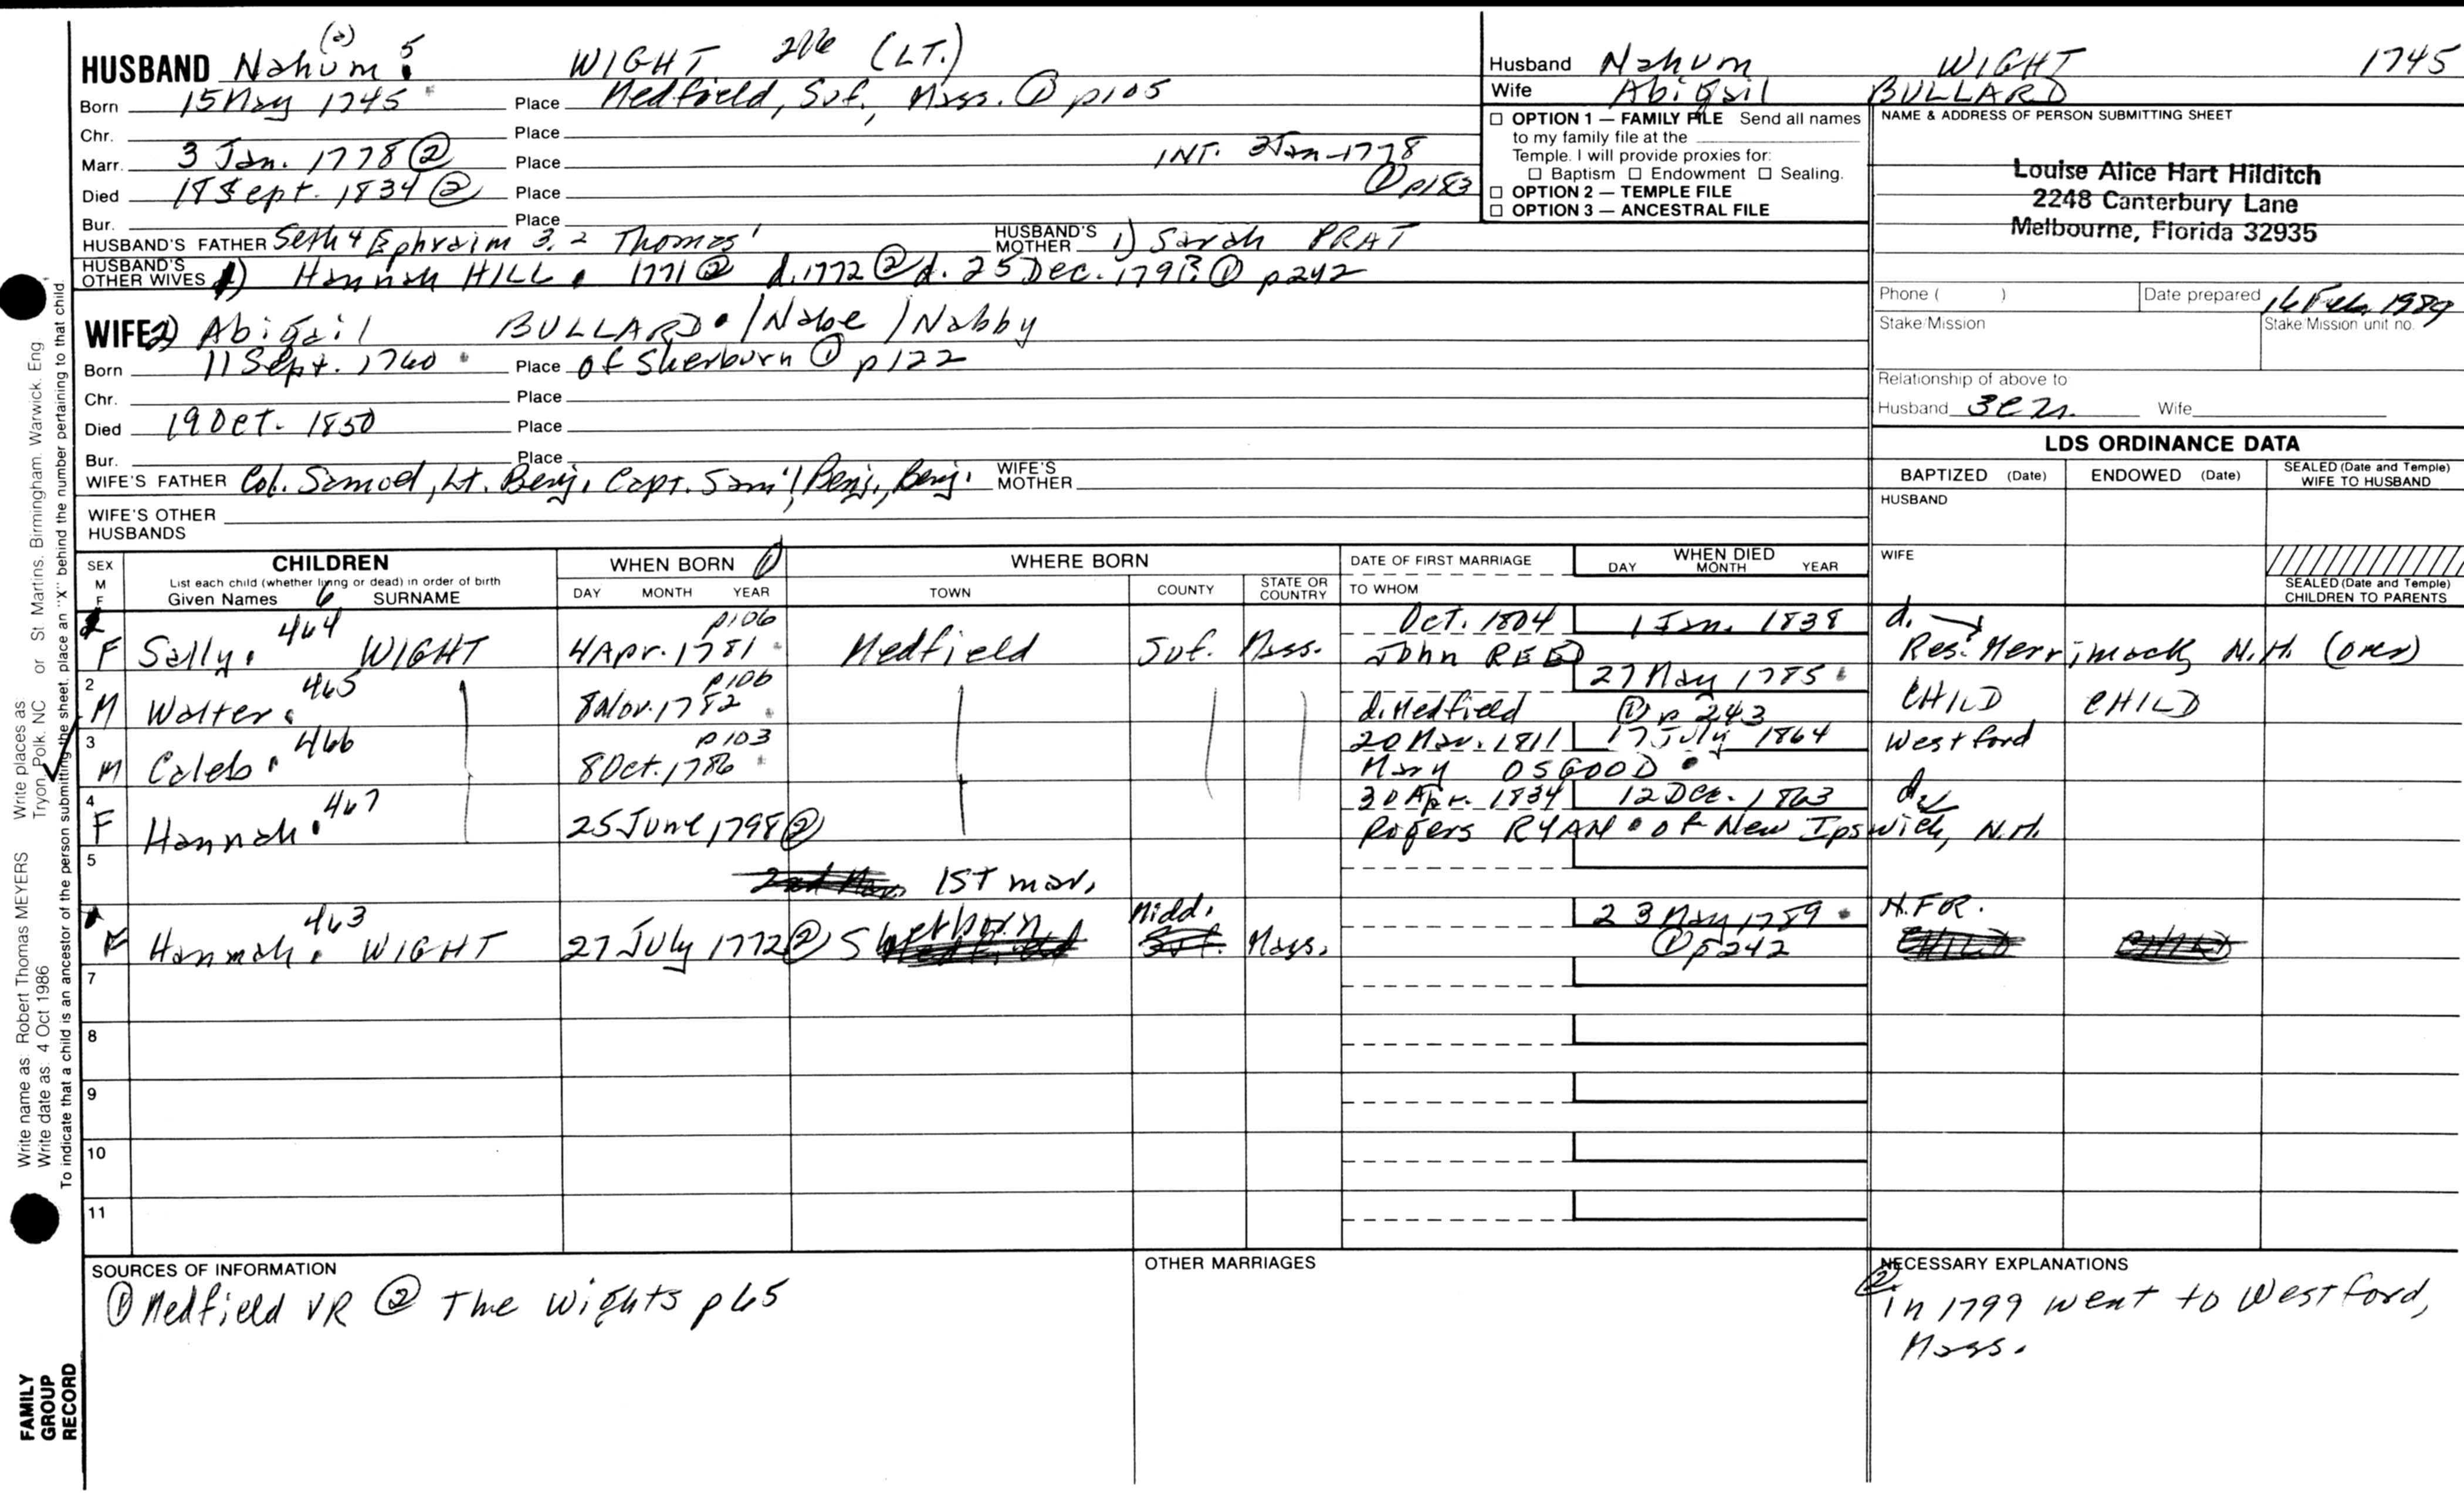 HUSBAND Nahum (2) 5 WIGHT 206 (LT.)
Born 15 May 1745 Place Medfield, Suf., Mass. ① p105
Chr. Place
Marr. 3 Jan. 1778 ② Place INT. 2 Jan 1778
Died 18 Sept. 1834 ② Place ① p183
Bur. Place
HUSBAND'S FATHER Seth 4 Ephraim 3, 2 Thomas 1 HUSBAND'S MOTHER 1) Sarah PRAT
HUSBAND'S OTHER WIVES 1) Hannah HILL 1771 ② d. 1772 ② d. 25 Dec. ① p242
WIFE 2) Abigail BULLARD / Nabe / Nabby
Born 11 Sept. 1760 Place of Sherburn ① p122
Chr. Place
Died 19 Oct. 1850 Place
Bur. Place
WIFE'S FATHER Col. Samuel, Lt. Benj., Capt. Sam'l, Benj., Benj. WIFE'S MOTHER
WIFE'S OTHER HUSBANDS
Husband Nahum WIGHT 1745
Wife Abigail BULLARD
☐ OPTION 1 — FAMILY FILE Send all names
to my family file at the
Temple. I will provide proxies for:
☐ Baptism ☐ Endowment ☐ Sealing.
☐ OPTION 2 — TEMPLE FILE
☐ OPTION 3 — ANCESTRAL FILE
NAME & ADDRESS OF PERSON SUBMITTING SHEET
Louise Alice Hart Hilditch
2248 Canterbury Lane
Melbourne, Florida 32935
Phone ( ) Date prepared 16 Feb. 1989
Stake/Mission Stake/Mission unit no.
Relationship of above to
Husband 3C Wife
LDS ORDINANCE DATA
BAPTIZED (Date) ENDOWED (Date) SEALED (Date and Temple) WIFE TO HUSBAND
HUSBAND
WIFE
SEALED (Date and Temple) CHILDREN TO PARENTS
SEX M F
CHILDREN
List each child (whether living or dead) in order of birth
Given Names 6 SURNAME
WHEN BORN ①
DAY MONTH YEAR
WHERE BORN
TOWN COUNTY STATE OR COUNTRY
DATE OF FIRST MARRIAGE
TO WHOM
WHEN DIED
DAY MONTH YEAR
464 p106 Oct. 1804 1 Jan. 1838 d.
F Sally WIGHT 4 Apr. 1781 Medfield Suf. Mass. John REED Res. Merrimack, N.H. (over)
2 465 p106 27 May 1785
M Walter 8 Nov. 1782 d. Medfield ① p 243 CHILD CHILD
3 466 p103 20 Nov. 1811 17 July 1864 Westford
M Caleb 8 Oct. 1786 Mary OSGOOD
4 467 30 Apr. 1834 12 Dec. 1863 d.
F Hannah 25 June 1798 ② Rogers RYAN of New Ipswich, N.H.
5
1st mar.
463 Midd. 23 May 1789 N.F.R.
F Hannah WIGHT 27 July 1772 ② Sherborn Suf. Mass. ① p242 CHILD CHILD
7
8
9
10
11
SOURCES OF INFORMATION
① Medfield VR ② The Wights p 65
OTHER MARRIAGES
NECESSARY EXPLANATIONS
② in 1799 went to Westford,
Mass.
Write name as: Robert Thomas MEYERS Write places as: Tryon, Polk, NC or St Martins, Birmingham, Warwick, Eng
Write date as: 4 Oct 1986
To indicate that a child is an ancestor of the person submitting the sheet, place an "X" behind the number pertaining to that child.
FAMILY
GROUP
RECORD